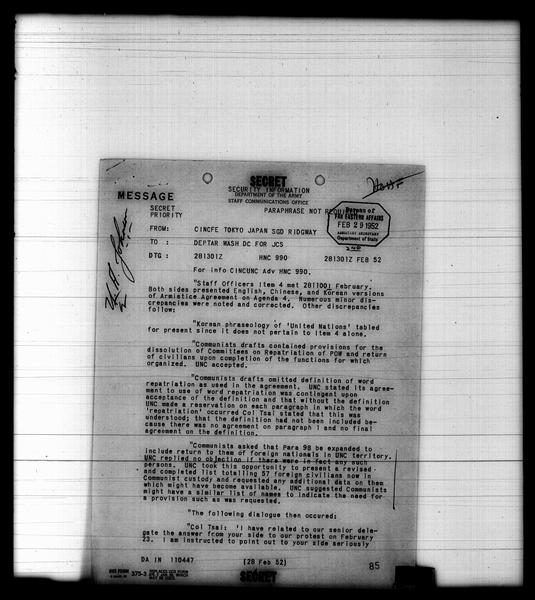 SECRET
SECURITY INFORMATION
DEPARTMENT OF THE ARMY
STAFF COMMUNICATIONS OFFICE
MESSAGE
SECRET
PRIORITY
PARAPHRASE NOT REQUIRED
Bureau of
FAR EASTERN AFFAIRS
FEB 29 1952
Department of State
FROM: CINCFE TOKYO JAPAN SGD RIDGWAY
TO : DEPTAR WASH DC FOR JCS
DTG : 281301Z HNC 990 281301Z FEB 52
For info CINCUNC Adv HNC 990.
"Staff Officers Item 4 met 281100I February.
Both sides presented English, Chinese, and Korean versions
of Armistice Agreement on Agenda 4. Numerous minor dis-
crepancies were noted and corrected. Other discrepancies
follow:
"Korean phraseology of 'United Nations' tabled
for present since it does not pertain to Item 4 alone.
"Communists drafts contained provisions for the
dissolution of Committees on Repatriation of POW and return
of civilians upon completion of the functions for which
organized. UNC accepted.
"Communists drafts omitted definition of word
repatriation as used in the agreement. UNC stated its agree-
ment to use of word repatriation was contingent upon
acceptance of the definition and that without the definition
UNC made a reservation on each paragraph in which the word
'repatriation' occurred Col Tsai stated that this was
understood; that the definition had not been included be-
cause there was no agreement on paragraph 1 and no final
agreement on the definition.
"Communists asked that Para 9B be expanded to
include return to them of foreign nationals in UNC territory.
UNC replied no objection if there were in fact any such
persons. UNC took this opportunity to present a revised
and completed list totalling 57 foreign civilians now in
Communist custody and requested any additional data on them
which might have become available. UNC suggested Communists
might have a similar list of names to indicate the need for
a provision such as was requested.
"The following dialogue then occured:
"Col Tsai: 'I have related to our senior dele-
gate the answer from your side to our protest on February
23. I am instructed to point out to your side seriously
DA IN 110447 (28 Feb 52)
85
375-3
SECRET